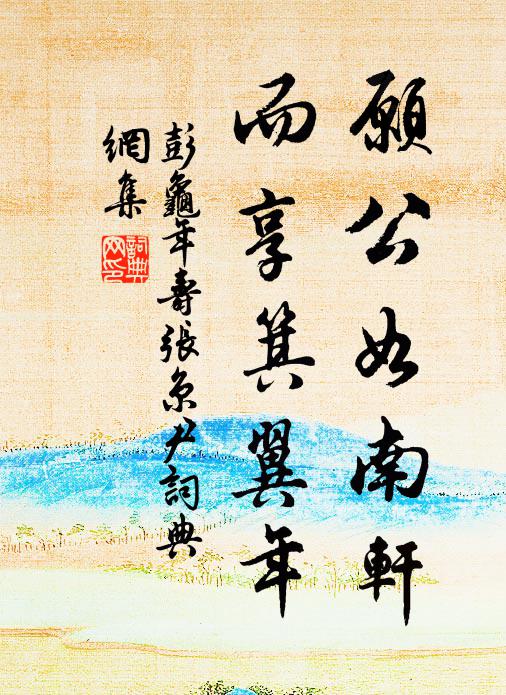 願公如南軒
而享箕翼年
彭龜年壽張京尹詞典
網集
詞典
网印